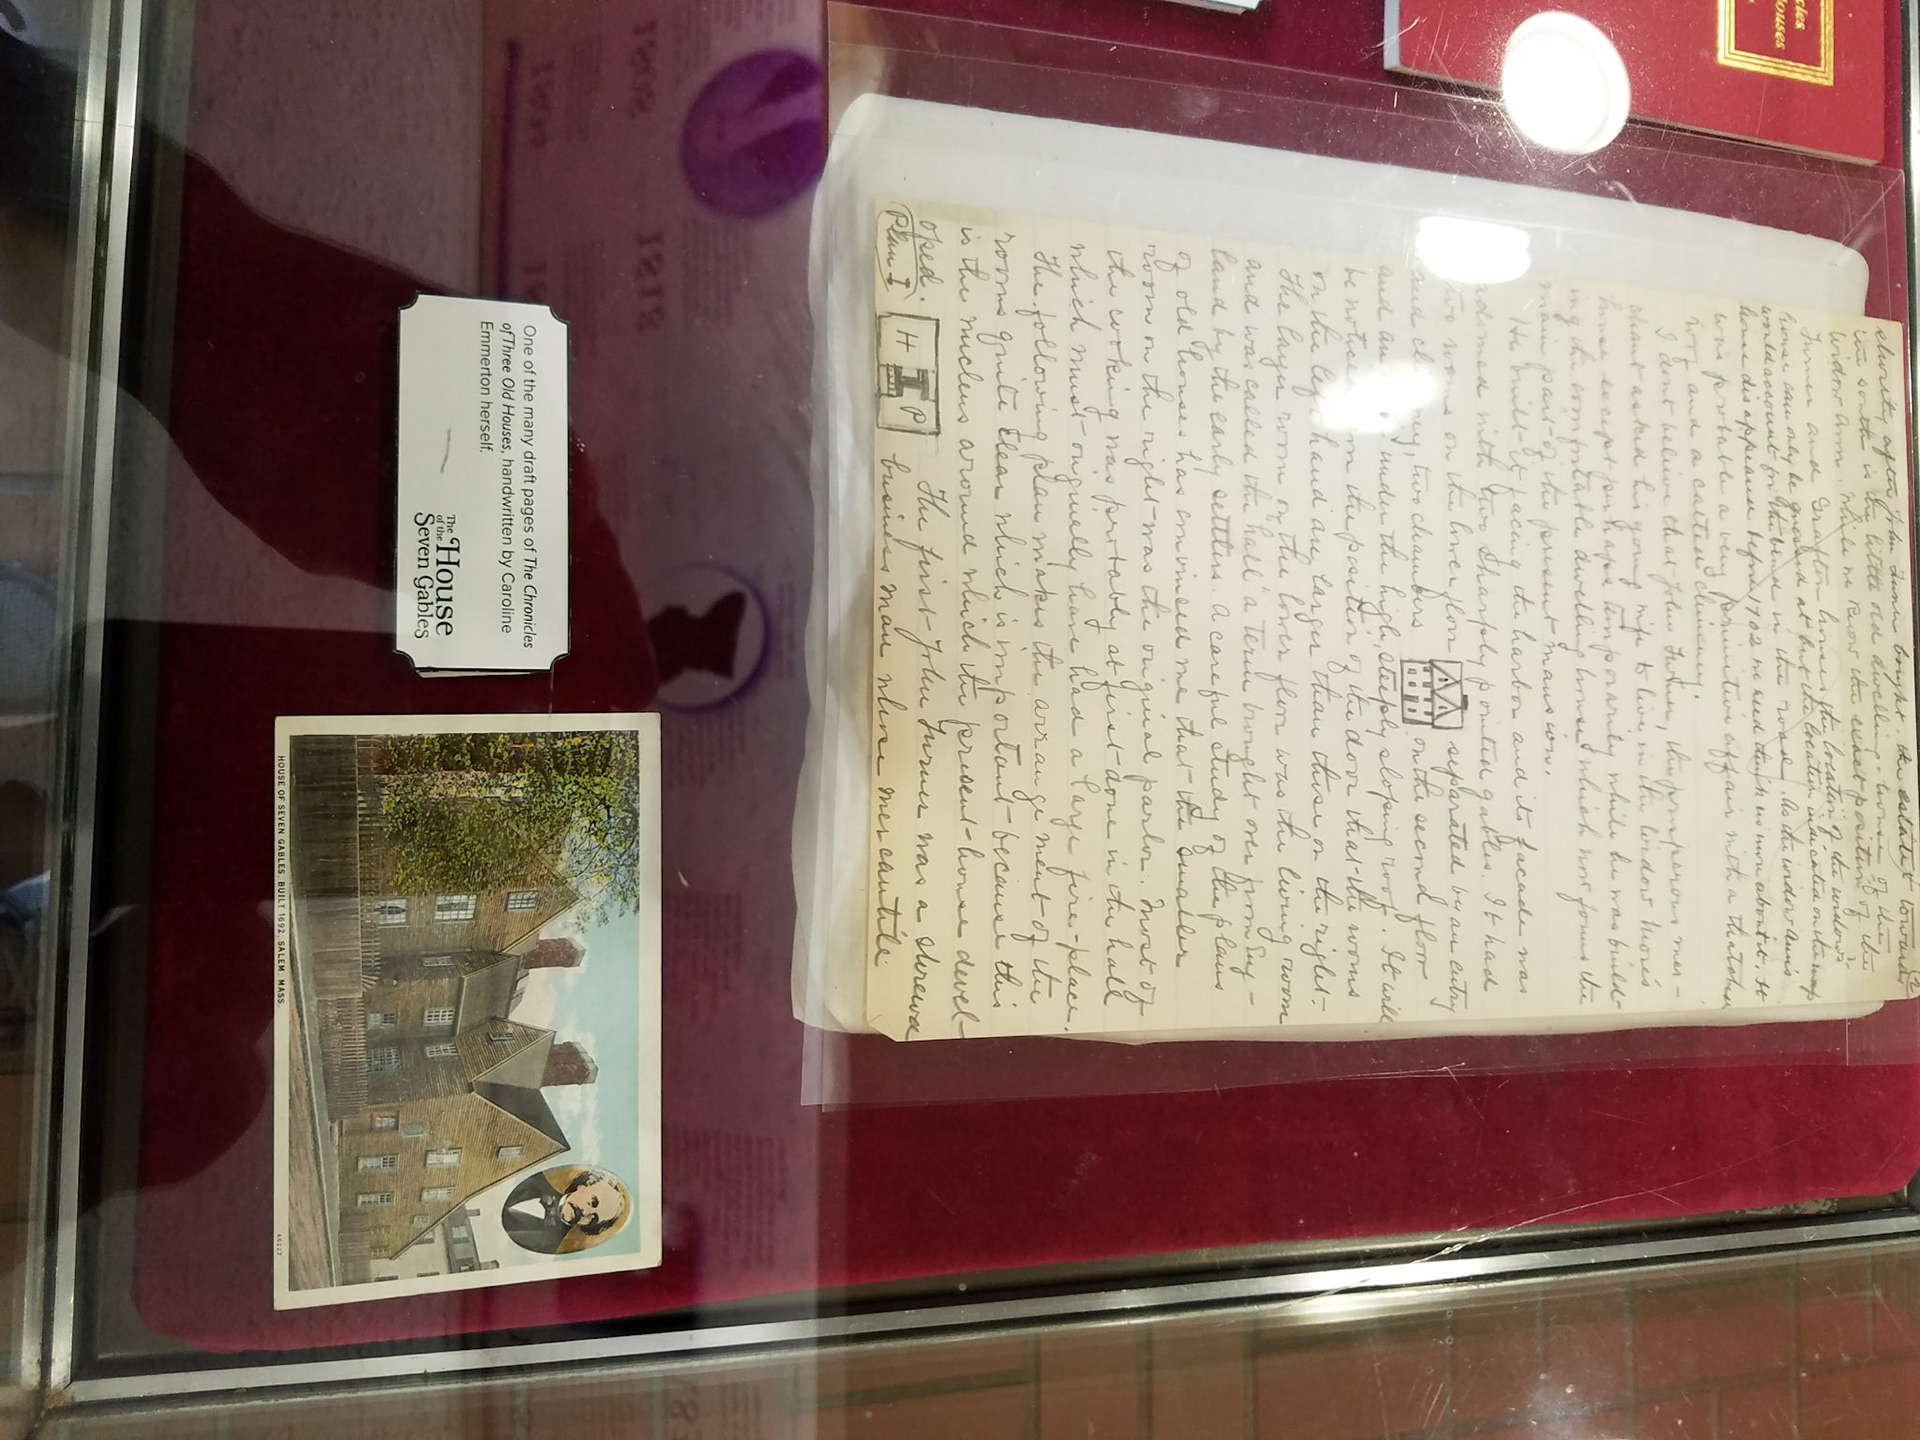 cles
ouses
2
shortly after John Turner bought the estate toward
the south is the little old dwelling-house of the
Widow Ann. While we know the exact position of the
Turner and Grafton houses the location of the widow's
house can only be guessed at but the location indicated on the map
would account for the bend in the road. As the widow Ann's
house disappeared before 1702 we need think no more about it. It
was probably a very primitive affair with a thatched
roof and a catted chimney.
I dont believe that John Turner, the prosperous mer-
chant asked his young wife to live in the widow More's
house except perhaps temporarily while he was build-
ing the comfortable dwelling house which now forms the
main part of the present mansion.
He built it facing the harbor and its facade was
adorned with two sharply pointed gables. It had
two rooms on the lower floor separated by an entry
and chimney, two chambers on the second floor
and an under the high, steeply sloping roof. It will
be noticed from the position of the door that the rooms
on the left hand are larger than those on the right.
The larger room on the lower floor was the living room
and was called the "hall" a term brought over from Eng-
land by the early settlers. A careful study of the plans
of old houses has convinced me that the smaller
room on the right was the original parlor. Most of
the cooking was probably at first done in the hall
which must originally have had a large fire-place.
The following plan makes the arrangement of the
rooms quite clear which is important because this
is the nucleus around which the present house devel-
oped. The first John Turner was a shrewd
Plan I H P business man whose mercantile
One of the many draft pages of The Chronicles
of Three Old Houses, handwritten by Caroline
Emmerton herself.
The House
of the
Seven Gables
HOUSE OF SEVEN GABLES, BUILT 1692, SALEM, MASS.